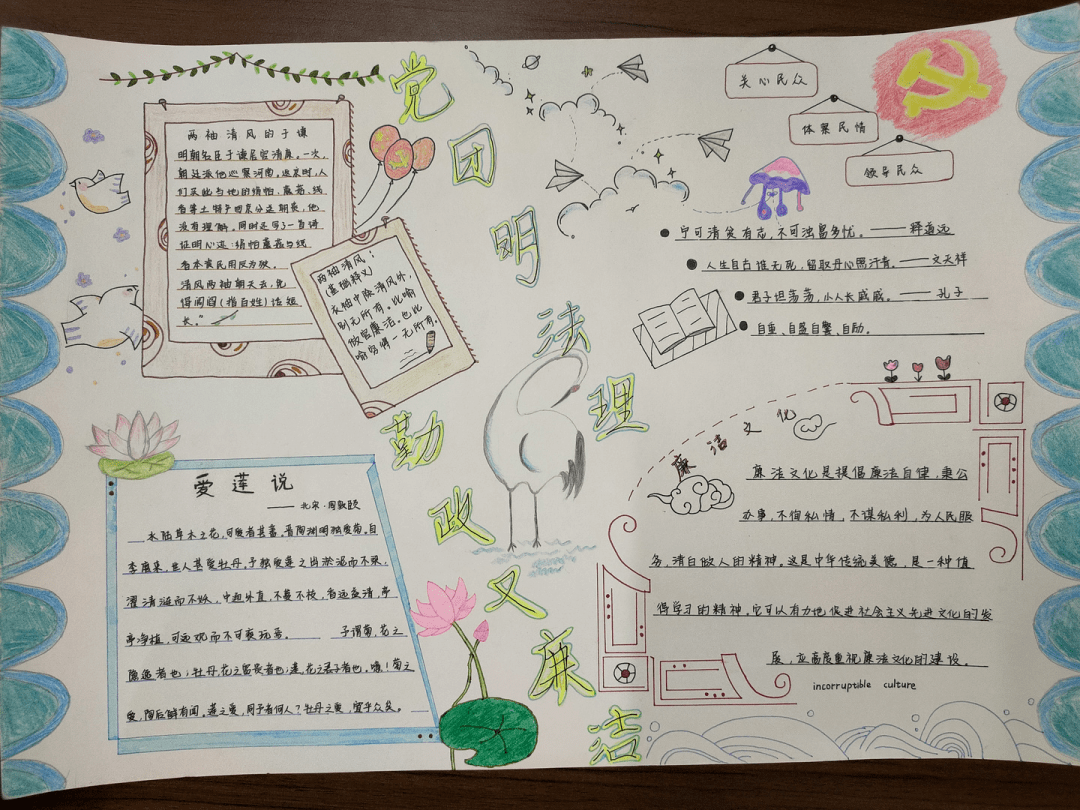 党团明法理
勤政又廉洁
两袖清风的于谦
明朝名臣于谦居官清廉。一次,
朝廷派他巡察河南。返京时,人
们买些当地的绢帕、蘑菇、线
香等土特产回京分送朝贵,他
没有理解。同时还写了一首诗
证明心迹:绢帕蘑菇与线
香本资民用反为殃。
清风两袖朝天去,免
得闾阎(指百姓)话短
长。”
两袖清风:
(基础释义)
衣袖中除清风外,
别无所有。比喻
做官廉洁。也比
喻穷得一无所有。
关心民众
体察民情
领导民众
宁可清贫有志,不可浊富多忧。——释道远
人生自古谁无死,留取丹心照汗青。——文天祥
君子坦荡荡,小人长戚戚。——孔子
自重、自盛自警、自励。
爱莲说
——北宋·周敦颐
水陆草木之花,可爱者甚蕃。晋陶渊明独爱菊。自
李唐来,世人甚爱牡丹。予独爱莲之出淤泥而不染,
濯清涟而不妖,中通外直,不蔓不枝,香远益清,亭
亭净植,可远观而不可亵玩焉。 予谓菊,花之
隐逸者也;牡丹,花之富贵者也;莲,花之君子者也。噫!菊之
爱,陶后鲜有闻。莲之爱,同予者何人?牡丹之爱,宜乎众矣。
廉洁文化
廉洁文化是提倡廉洁自律,秉公
办事,不徇私情,不谋私利,为人民服
务,清白做人的精神。这是中华传统美德,是一种值
得学习的精神,它可以有力地促进社会主义先进文化的发
展,应高度重视廉洁文化的建设。
incorruptible culture